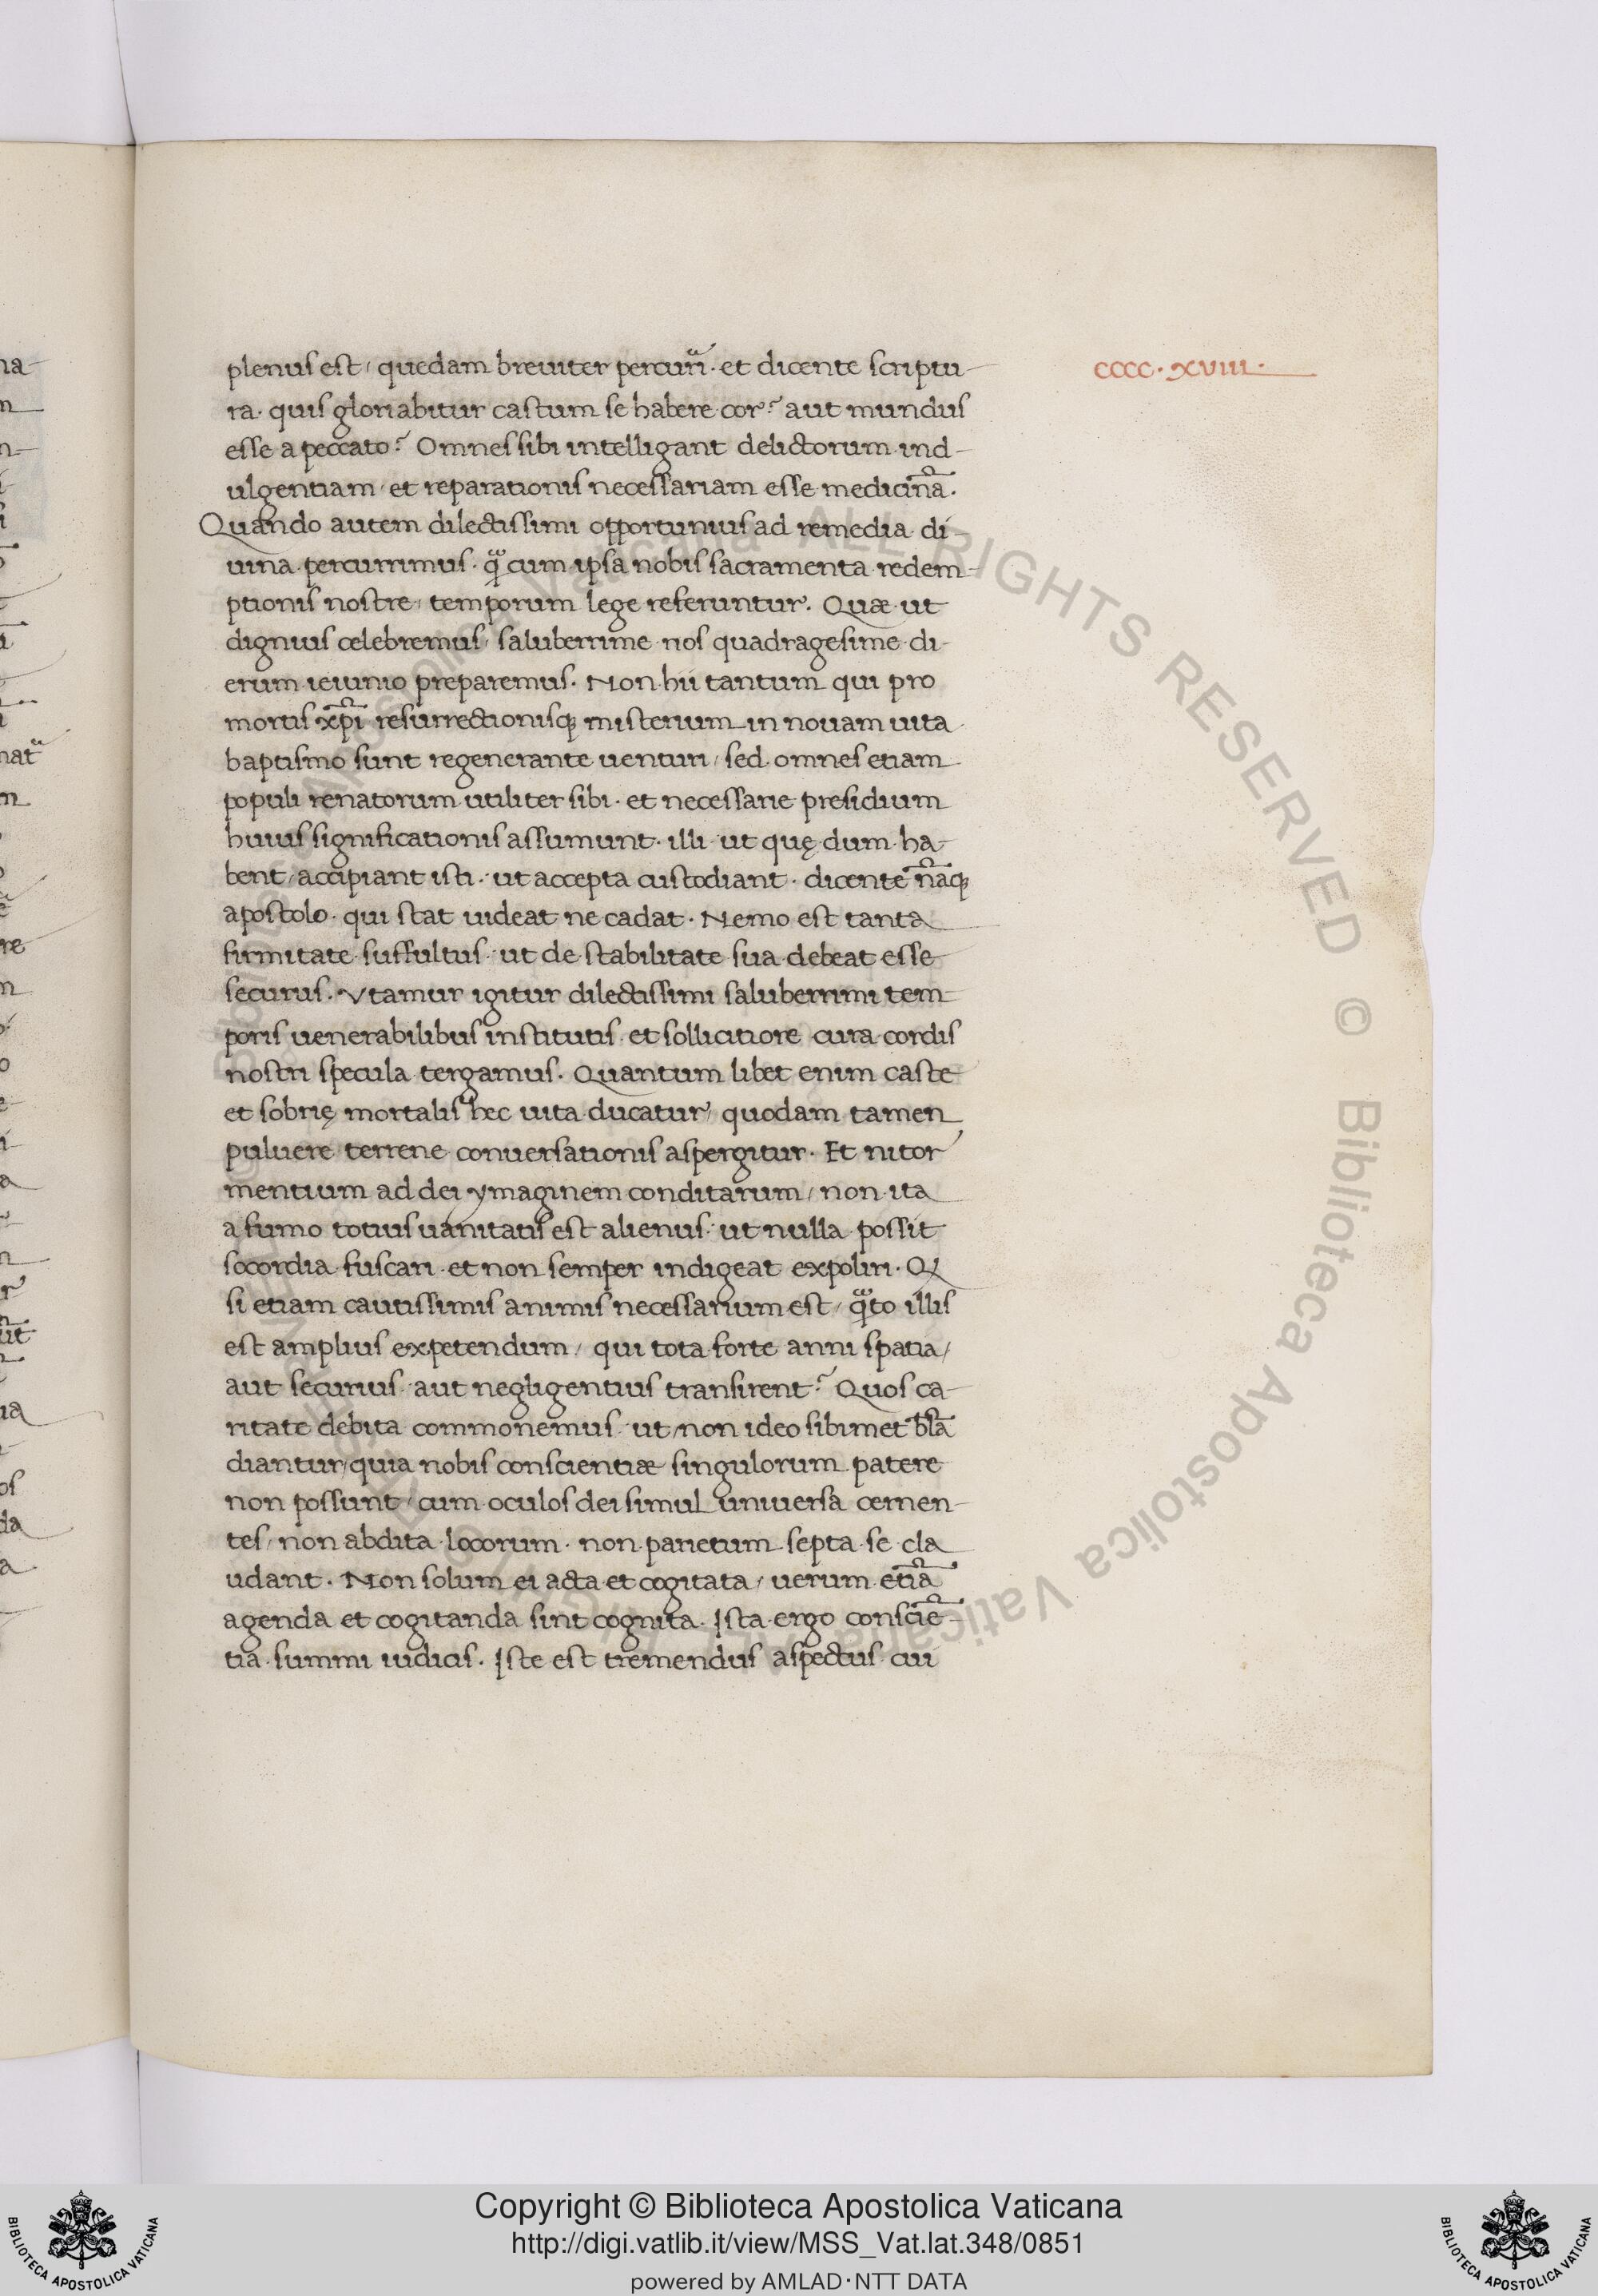 plenus est / quedam breuiter percurri͛ · et dicente scriptu-
CCCC · XVIII ·
ra · quis gloriabitur castum se habere cor? aut mundus
esse a peccato? Omnes sibi intelligant delictorum ind-
ulgentiam / et reparationis necessariam esse medicinã.
Quando autem dilectissimi opportunius ad remedia di-
uina percurrimus · qᷓ cum ipsa nobis sacramenta redem-
ptionis nostre / temporum lege referuntur. Quæ ut
dignius celebremus / saluberrime nos quadragesime di-
erum ieiunio preparemus. Non hii tantum qui pro
mortis xp̃i resurrectionisq; misterium in nouam uita
baptismo sunt regenerante uenturi / sed omnes etiam
populi renatorum utiliter sibi · et necessarie presidium
huius significationis assumunt · illi ut quę dum ha-
bent / accipiant isti · ut accepta custodiant · dicente nãq;
apostolo · qui stat uideat ne cadat · Nemo est tanta
firmitate suffultus · ut de stabilitate sua debeat esse
securus. Vtamur igitur dilectissimi saluberrimi tem-
poris uenerabilibus institutis · et sollicitiore cura cordis
nostri specula tergamus. Quantum libet enim caste
et sobrię mortalis hec uita ducatur / quodam tamen
puluere terrene conuersationis aspergitur. Et nitor
mentium ad dei ymaginem conditarum / non ita
a fumo totius uanitatis est alienus · ut nulla possit
socordia fuscari · et non semper indigeat expoliri. Q
si etiam cautissimis animis necessarium est / qᷓto illis
est amplius expetendum / qui tota forte anni spatia /
aut securius · aut negligentius transirent? Quos ca-
ritate debita commonemus · ut / non ideo sibimet blã
diantur / quia nobis conscientiæ singulorum patere
non possunt / cum oculos dei simul uniuersa cernen-
tes / non abdita locorum · non parietum septa se cla
udant. Non solum ei acta et cogitata / uerum etiã
agenda et cogitanda sint cognita. Ista ergo consciẽ-
tia summi iudicis. Iste est tremendus aspectus cui
Copyright © Biblioteca Apostolica Vaticana
http://digi.vatlib.it/view/MSS_Vat.lat.348/0851
powered by AMLAD·NTT DATA
BIBLIOTECA APOSTOLICA VATICANA
BIBLIOTECA APOSTOLICA VATICANA
Biblioteca Apostolica Vaticana ALL RIGHTS RESERVED © Biblioteca Apostolica Vaticana